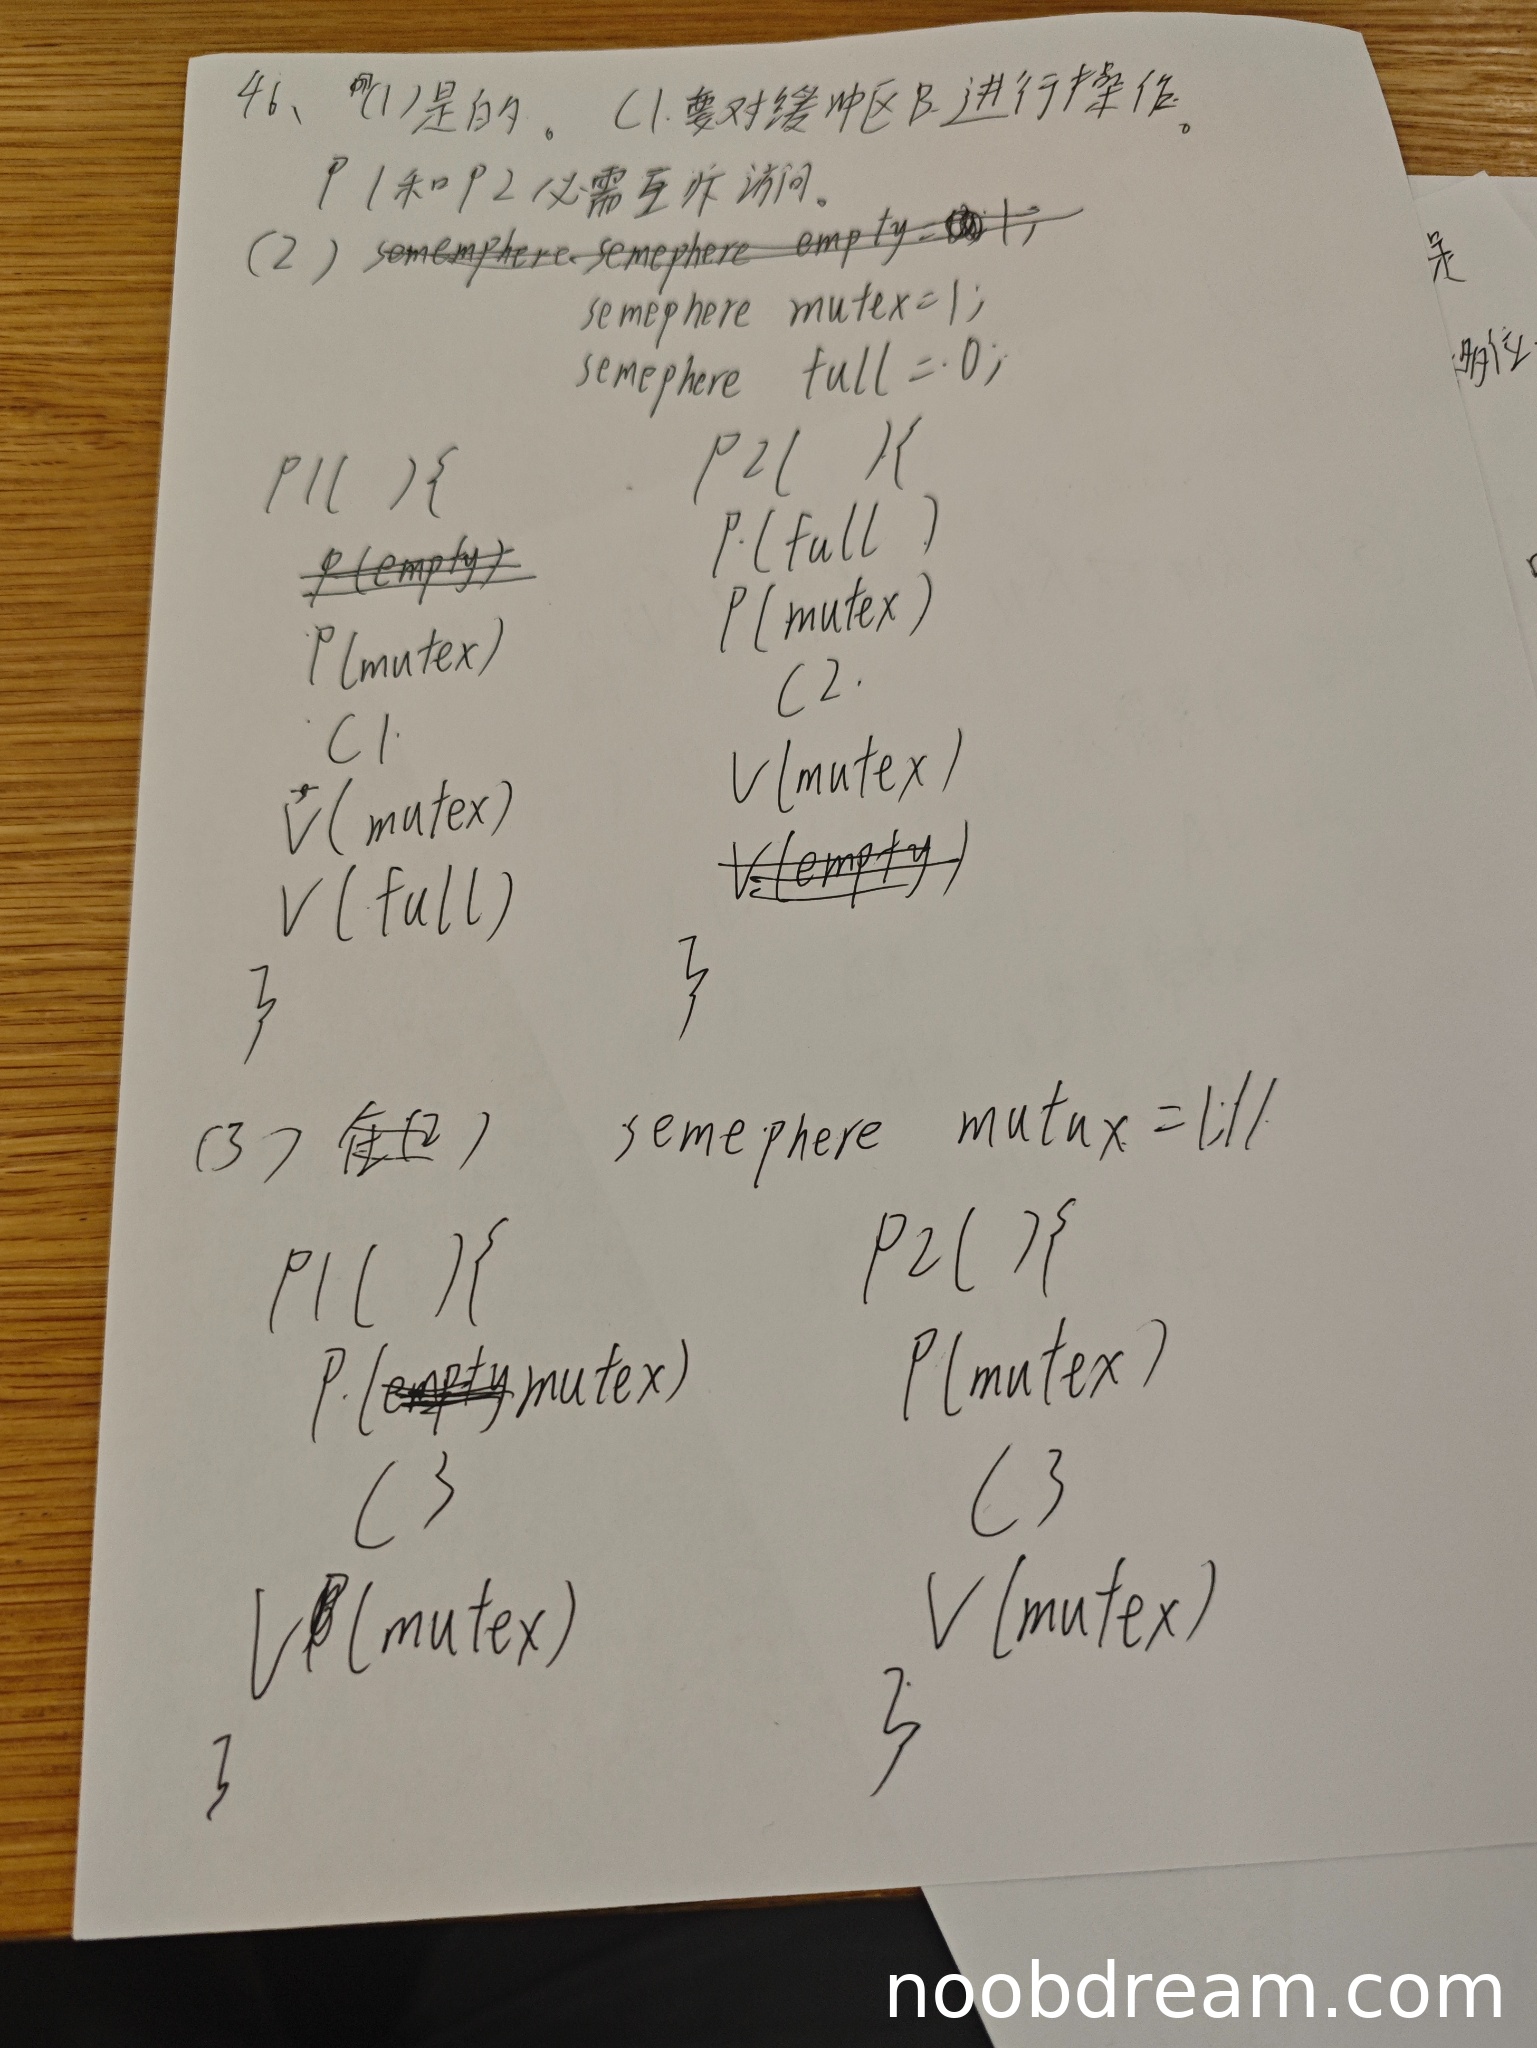 46、(1)是的。 C1要对缓冲区B进行操作。
P1和P2必需互斥访问。
(2) somemphere semephere empty=1;
semephere mutex=1;
semephere full=0;
P1( ){
P(empty)
P(mutex)
C1.
V(mutex)
V(full)
}
P2( ){
P(full)
P(mutex)
C2.
V(mutex)
V(empty)
}
(3) semephere mutux=1;
P1( ){
P(empty mutex)
C3
V(mutex)
}
P2( ){
P(mutex)
C3
V(mutex)
}
是
noobdream.com